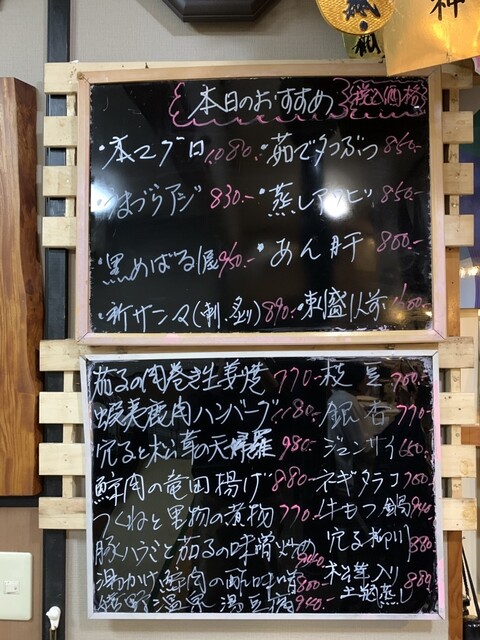 神
本日のおすすめ 税込価格
・本マグロ 1,080.- ・茹でタコぶつ 850.-
830.- ・蒸しアワビ 850.-
・黒めばる 950.- ・あん肝 800.-
・新サンマ(刺、炙り) 890.- ・刺盛1人前
茄子の肉巻き生姜焼 770.- 枝豆 700.-
蝦夷鹿肉ハンバーグ 1,180.- 銀杏 770.-
穴子と松茸の天婦羅 980.- ジュンサイ 660.-
鯨肉の竜田揚げ 880.- ネギタラコ 700.-
つくねと果物の煮物 770.- 牛もつ鍋 940.-
豚ハラミと茄子の味噌炒め 穴子柳川 880.-
鯨肉 松茸入り
嬉野温泉湯豆腐 940.- 土瓶蒸し 880.-